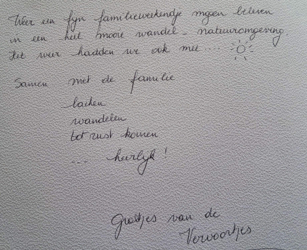 Weer een fijn familieweekendje mogen beleven
in een heel mooie wandel - natuuromgeving.
Het weer hadden we ook mee ....
Samen met de familie
lachen
wandelen
tot rust komen
... heerlijk!
Groetjes van de
Vervoortjes